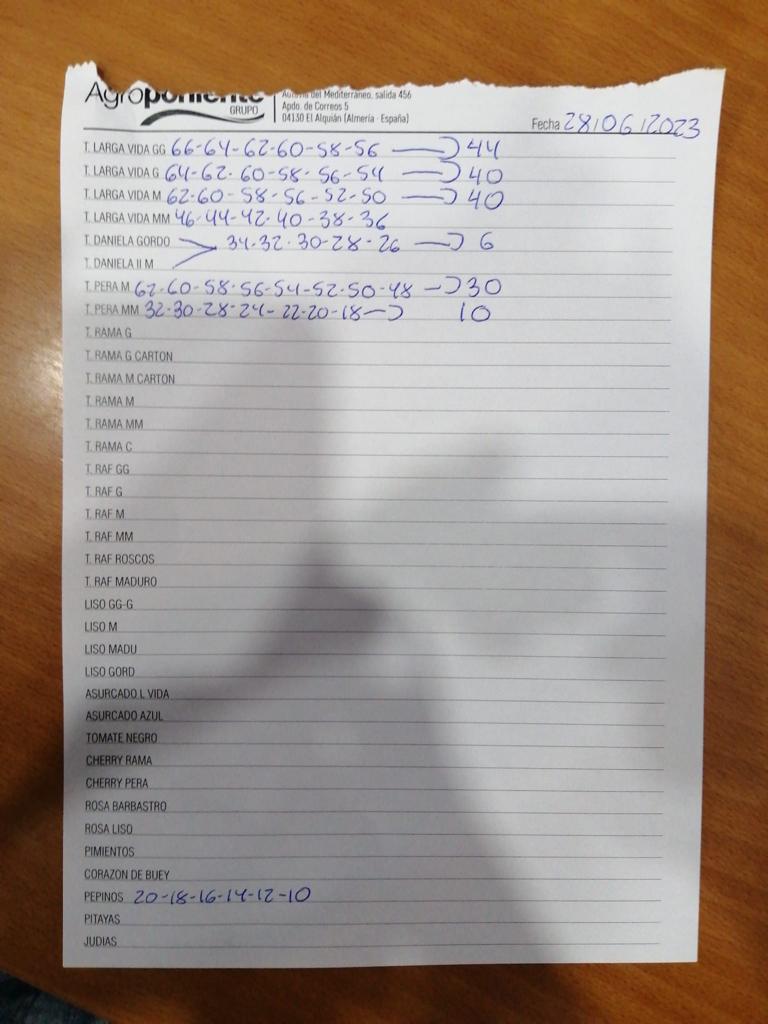 Agroponiente
GRUPO
Autovía del Mediterráneo, salida 456
Apdo. de Correos 5
04130 El Alquián (Almería - España)
Fecha 28/06/2023
T. LARGA VIDA GG 66-64-62-60-58-56 → 44
T. LARGA VIDA G 64-62-60-58-56-54 → 40
T. LARGA VIDA M 62-60-58-56-52-50 → 40
T. LARGA VIDA MM 46-44-42-40-38-36
T. DANIELA GORDO 34-32-30-28-26 → 6
T. DANIELA II M
T. PERA M 62-60-58-56-54-52-50-48 → 30
T. PERA MM 32-30-28-24-22-20-18 → 10
T. RAMA G
T. RAMA G CARTON
T. RAMA M CARTON
T. RAMA M
T. RAMA MM
T. RAMA C
T. RAF GG
T. RAF G
T. RAF M
T. RAF MM
T. RAF ROSCOS
T. RAF MADURO
LISO GG-G
LISO M
LISO MADU
LISO GORD
ASURCADO L VIDA
ASURCADO AZUL
TOMATE NEGRO
CHERRY RAMA
CHERRY PERA
ROSA BARBASTRO
ROSA LISO
PIMIENTOS
CORAZON DE BUEY
PEPINOS 20-18-16-14-12-10
PITAYAS
JUDIAS